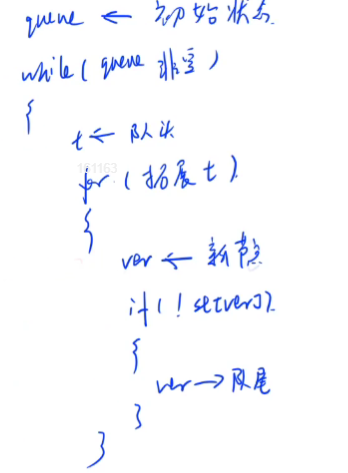 queue ← 初始状态
while(queue 非空)
{
t ← 队头
161163
for (拓展 t)
{
ver ← 新节点
if(! st[ver])
{
ver → 队尾
}
}